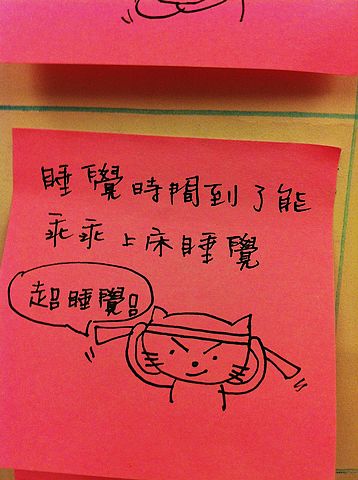 睡覺時間到了能
乖乖上床睡覺
超睡覺!!